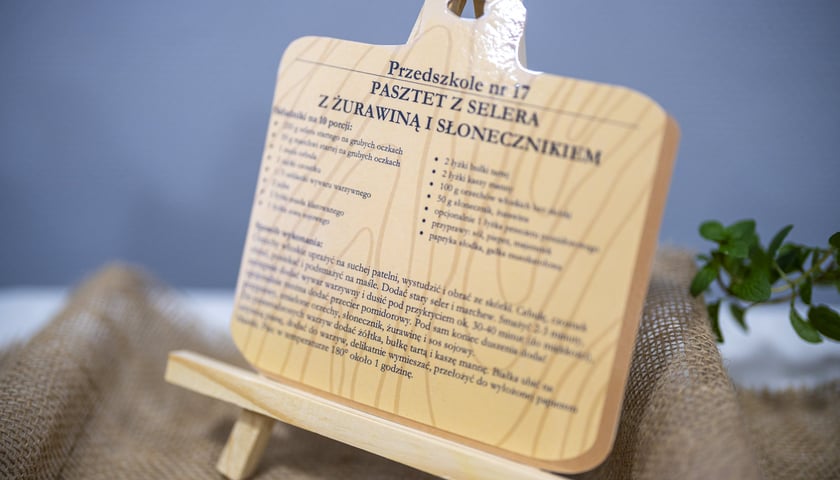 Przedszkole nr 17
PASZTET Z SELERA
Z ŻURAWINĄ I SŁONECZNIKIEM
Składniki na 10 porcji:
selera startego na grubych oczkach
marchwi startej na grubych oczkach
cebula
wywaru warzywnego
sojowego
2 łyżki bułki tartej
2 łyżki kaszy manny
100 g orzechów włoskich bez skórki
50 g słonecznik, żurawina
opcjonalnie 1 łyżka przecieru pomidorowego
przyprawy: sól, pieprz, majeranek
papryka słodka, gałka muszkatołowa
Sposób wykonania:
Orzechy włoskie uprażyć na suchej patelni, wystudzić i obrać ze skórki. Cebulę, czosnek
posiekać i podsmażyć na maśle. Dodać starty seler i marchew. Smażyć 2-3 minuty,
następnie dodać wywar warzywny i dusić pod przykryciem ok. 30-40 minut (do miękkości),
można dodać przecier pomidorowy. Pod sam koniec duszenia dodać
zmielone orzechy, słonecznik, żurawinę i sos sojowy.
warzyw dodać żółtka, bułkę tartą i kaszę mannę. Białka ubić na
pianę, dodać do warzyw, delikatnie wymieszać, przełożyć do wyłożonej papierem
Piec w temperaturze 180° około 1 godzinę.